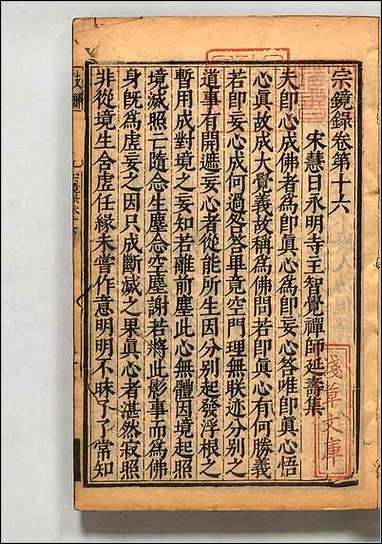 宗鏡錄卷第十六
宋慧日永明寺主智覺禪師延壽集
夫即心成佛者為即真心為即妄心答唯即真心悟
心真故成大覺義故稱為佛問若即真心有何勝義
若即妄心成何過咎答畢竟空門理無联迹分別之
道事有開遮妄心者從能所生因分別起發浮根之
暫用成對境之妄知若離前塵此心無體因境起照
境滅照亡隨念生塵念空塵謝若將此影事而為佛
身既為虛妄之因只成斷滅之果真心者湛然寂照
非從境生含虛任緣未嘗作意明明不昧了了常知
淺草文庫